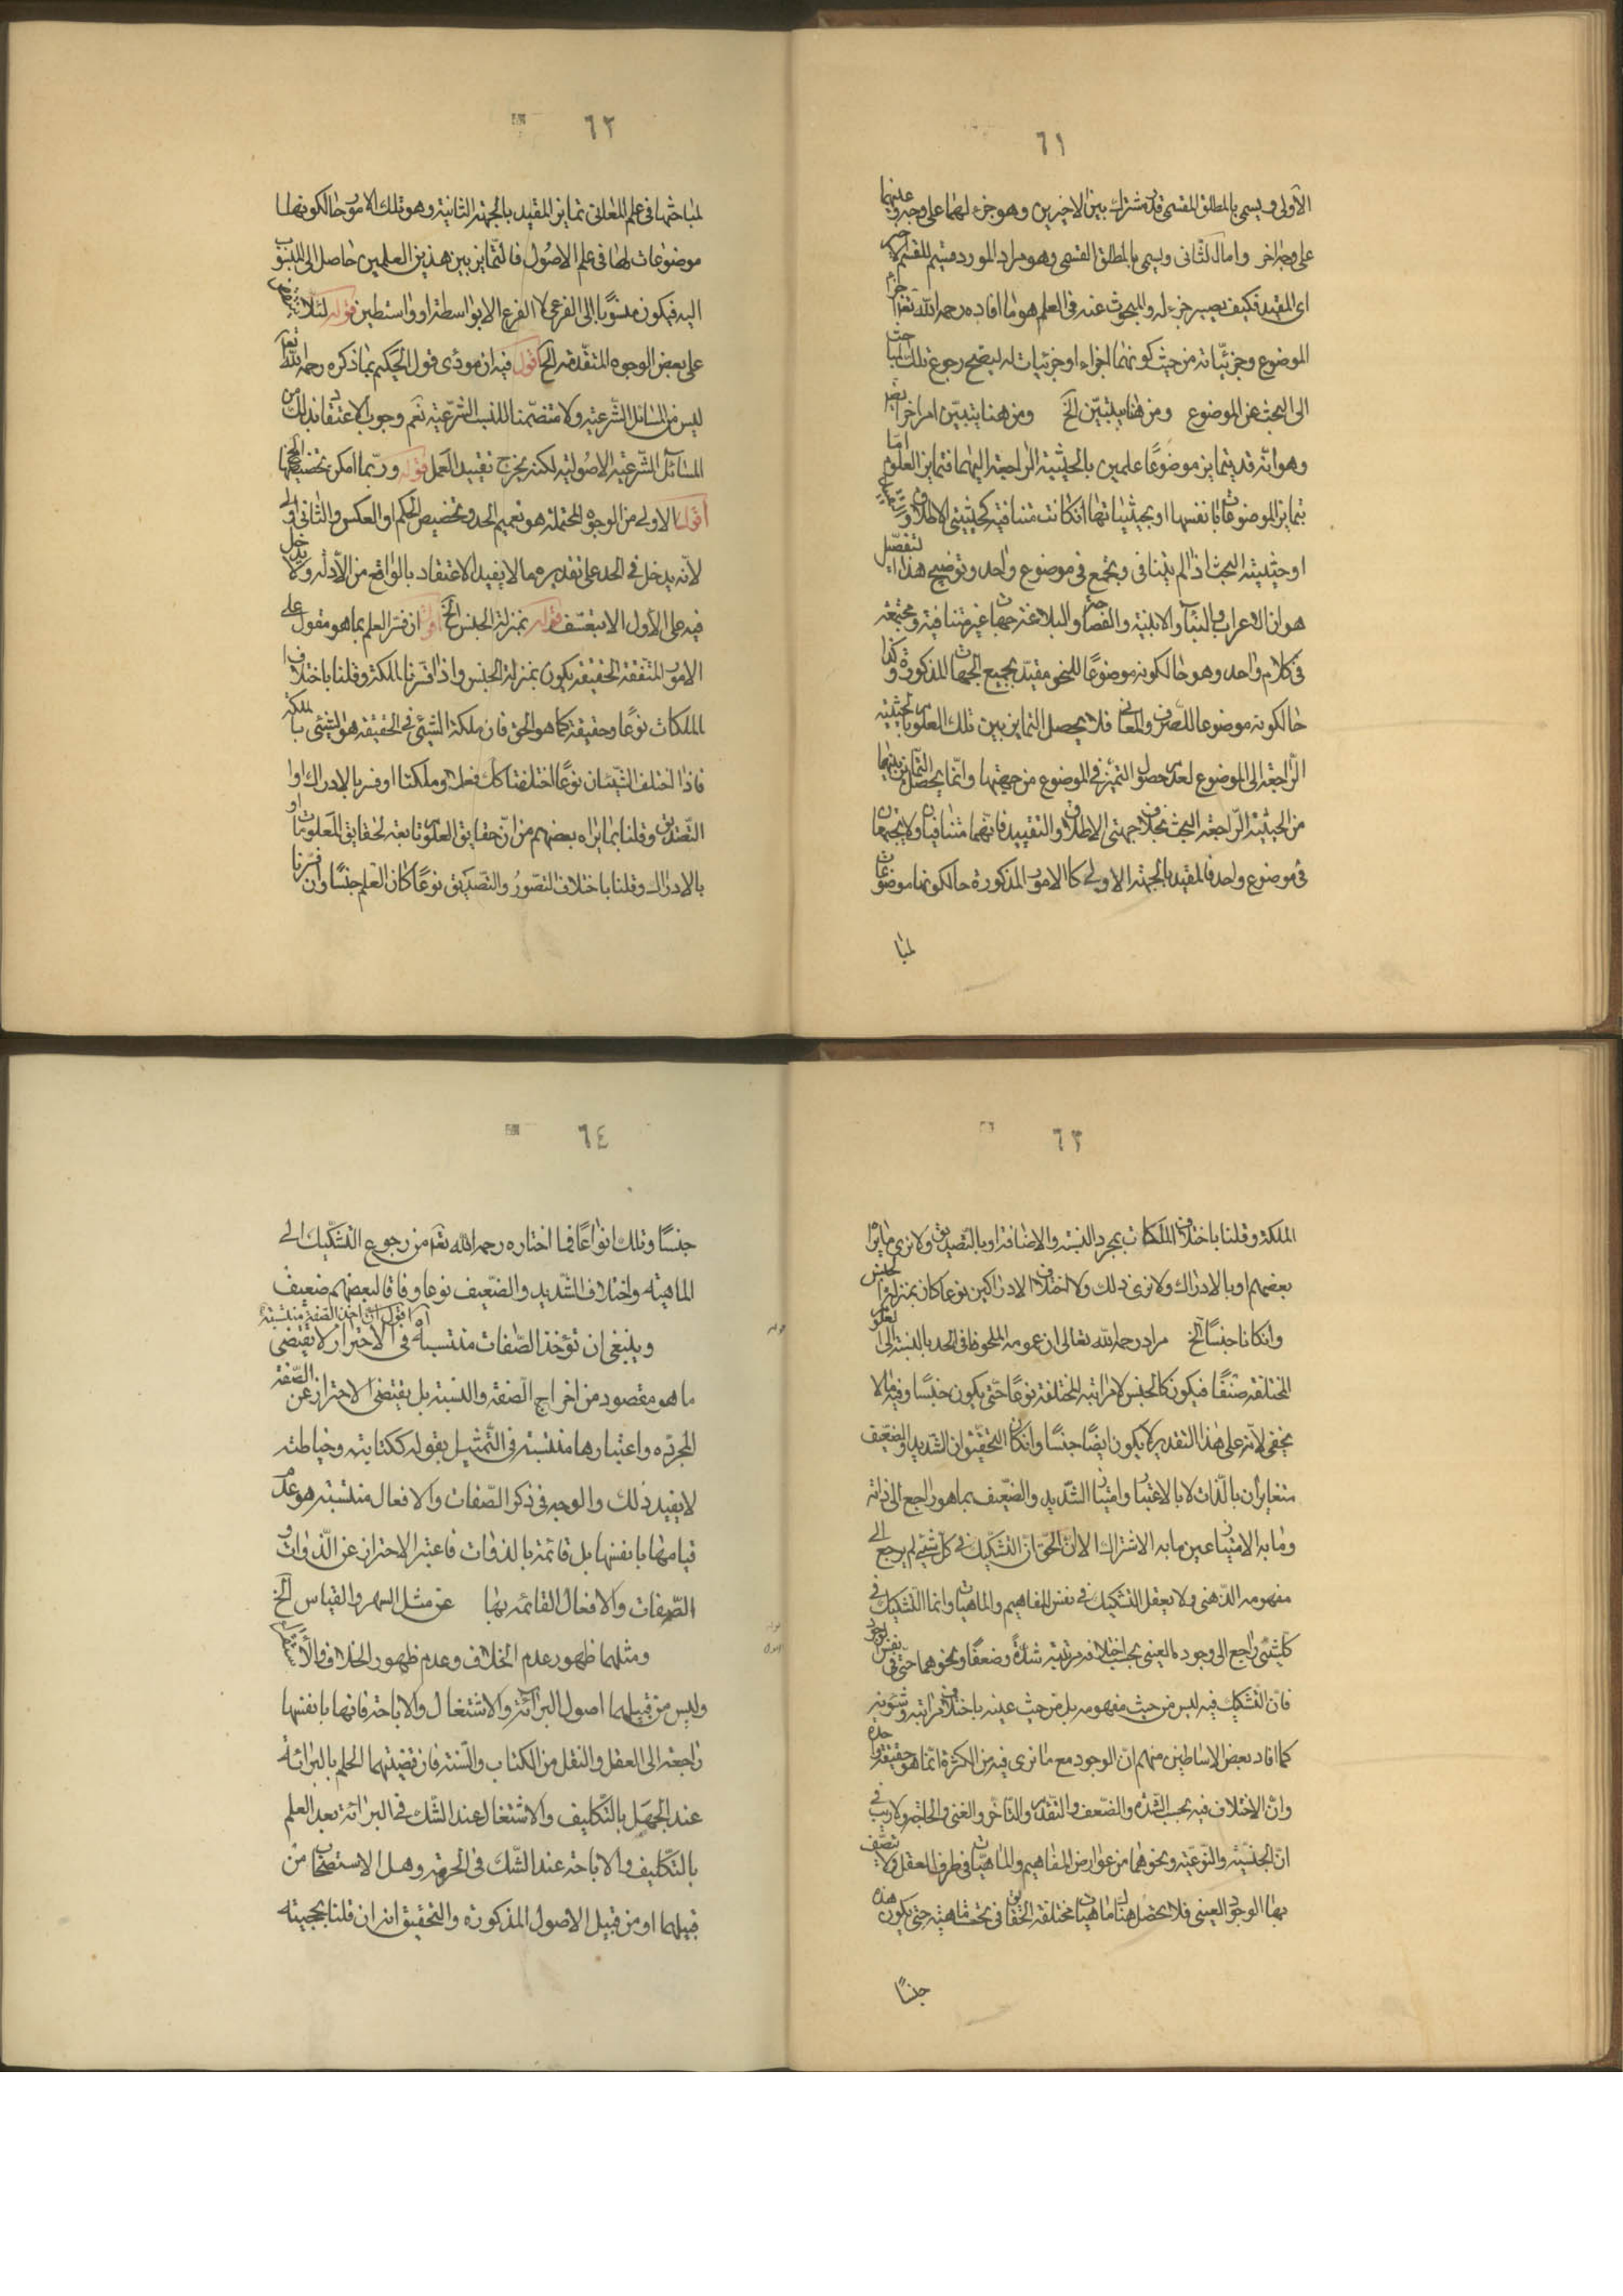 ٦١
الأولى ويسمى بالمطلق المقسمى قدر مشترك بين الاخيرين وهو جزء لهما على وجه وعينهما
على وجه اخر واما الثانى ويسمى بالمطلق القسمى وهو مراد المورد قسيم للقسم الاخر
اى المقيد فكيف يصير جزء له والمبحوث عنه فى العلم هو ما افاده رحمه الله تعالى اجزاء
الموضوع وجزئيّاته من حيث كونهما اجزاء او جزئيات له ليصح رجوع تلك المباحث
الى البحث عن الموضوع ومن هنا يتبيّن الخ ومن هنا يتبيّن امر اخر ايضا
وهو انّه قد يتمايز موضوعا علمين بالحيثية الراجعة اليهما فتمايز العلوم امّا
بتمايز الموضوعات بانفسها او بحيثياتها ان كانت متنافية كحيثيتى الاطلاق والتقييد
او حيثية البحث اذا لم يتنافى ويجمع فى موضوع واحد وتوضيح هذا التفصيل
هو ان الاعراب والبناء والابنية والفصاحة والبلاغة جهات غير متنافية ومجتمعة
فى كلام واحد وهو حال كونه موضوعًا للنحو مقيّد بجميع الجهات المذكورة وكذا
حال كونه موضوعا للصرف والمعانى فلا يحصل التمايز بين تلك العلوم بالحيثية
الراجعة الى الموضوع لعدم حصول التميز فى الموضوع من جهتها وانّما يحصل التمايز بينهما
من الحيثية الرّاجعة البحث بخلاف جهتى الاطلاق والتقييد فانّهما متنافيتان ولا يجتمعان
فى موضوع واحد فالمقيد بالجهة الاولى كالامور المذكورة حال كونها موضوعات
لمبا
٦٢
لمباحثها فى علم المعانى تمايز المقيد بالجهة الثانية وهو تلك الامور حال كونها
موضوعات لها فى علم الاصول فالتّمايز بين هذين العلمين حاصل الى المنسوب
اليه فيكون منسوبًا الى الفرعى لا الفرع الا بواسطة او واسطتين قوله لئلا ينتقض
على بعض الوجوه المتقدّمة الخ اقول فيه ان مودى قول الحكيم بما ذكره رحمه الله تعالى
ليس من المسائل الشّرعية ولا متضمّنا للنسب الشّرعيّة نعم وجوب الاعتقاد بذلك من
المسائل الشّرعية الاصولية لكنه يخرج بتقييد العمل قوله وربّما امكن تخصيصها الخ
اقول الاولى من الوجوه المحتملة هو تعميم الحد وتخصيص الحكم او العكس والثانى اولى
لانّه يدخل فى الحد على تقديره مما لا يفيد الاعتقاد بالواقع من الأدلّة ولا يدخل
فيه على الأول الا بتعسّف قوله بمنزلة الجنس الخ اقول ان فسّر العلم بما هو مقول على
الامور المتفقة الحقيقة يكون بمنزلة الجنس واذا فسّرنا بالملكة وقلنا باختلاف
الملكات نوعًا وحقيقة كما هو الحق فان ملكة الشيئى فى الحقيقة هو الشيئى بالملكة
فاذا اختلف الشّيئان نوعًا اختلفتا كلّ فعلا وملكتا او فسر بالادراك او
التّصديق وقلنا بما يراه بعضهم من انّ حقايق العلوم تابعة لحقايق المعلومات او
بالادراك وقلنا باختلاف التصوّر والتصديق نوعًا كان العلم جنسًا وان فسّرنا
٦٣
الملكة وقلنا باختلاف الملكات بمجرد النسبة والاضافة او بالتّصديق ولا نرى ما يراه
بعضهم او بالادراك ولا نرى ذلك ولا اختلاف الادراكين نوعا كان بمنزلة الجنس
وان كانا جنسًا الخ مراد رحمه الله تعالى ان عمومه الملحوظ فى الحد بالنسبة الى العلوم
المختلفة صنفًا فيكون كالجنس لا مراتبه المختلفة نوعًا حتّى يكون جنسًا وفيه ما لا
يخفى لانّه على هذا التقدير لا يكون ايضًا جنسًا وان كان التحقيق ان الشّديد والضعيف
متغايران بالذّات لا بالاعتبار وامتياز الشّديد والضّعيف بما هو راجع الى ذاته
وما به الامتياز عين ما به الاشتراك الا انّ الحقّ انّ التشكيك فى كلّ شيئى لم يرجع الى
مفهومه الذّهنى ولا يعقل التشكيك فى نفس المفاهيم والماهيات وانما التشكيك فى
كلّ شيئى راجع الى وجوده العينى بحسب اختلاف مرتبته شدّةً وضعفًا ونحوهما حتّى فى نفس الوجود
فانّ التشكيك فيه ليس من حيث مفهومه بل من حيث عينه باختلاف مراتبه وشئونه
كما افاد بعض الاساطين منهم انّ الوجود مع ما نرى فيه من الكثرة انّما هو حقيقة واحدة
وانّ الاختلاف فيه بحسب الشدّة والضّعف والتّقدم والتأخّر والغنى والحاجة ولا ريب فى
انّ الجنسيّة والنّوعيّة ونحوهما من عوارض المفاهيم والماهيّات فى ظرف العقل ولا يتصف
بها الوجود العينى فلا يحصل هنا ماهيات مختلفة الحقايق فى تحت ماهية حتى يكون هذه
جنسًا
٦٤
جنسًا وتلك انواعًا فما اختاره رحمه الله تعالى من رجوع التّشكيك الى
الماهيته واختلاف الشّديد والضّعيف نوعا وفاقا لبعضهم ضعيف
وينبغى ان تؤخذ الصّفات منتسبة آه اقول ان اخذ الصّفة منتسبة فى الاحتراز لا يقتضى
ما هو مقصود من اخراج الصّفة والنسبة بل يقتضى الاحتراز عن الصّفة
المجرّده واعتبارها منتسبة فى التّمثيل بقوله ككتابته وخياطته
لا يفيد ذلك والوجه فى ذكر الصّفات والافعال منتسبة هو عدم
قيامها بانفسها بل قائمة بالذوات فاعتبر الاحتراز عن الذّوات و
الصّفات والافعال القائمة بها عن مثل السهر والقياس الخ
ومثلهما ظهور عدم الخلاف وعدم ظهور الخلاف والاستقراء
وليس من قبيلهما اصول البرائة والاشتغال والاباحة فانها بانفسها
راجعة الى العقل والنقل من الكتاب والسّنة فان قضيتهما الحكم بالبرائة
عند الجهل بالتّكليف والاشتغال عند الشّك فى البرائة بعد العلم
بالتّكليف والاباحة عند الشّك فى الحرمة وهل الاستصحاب من
قبيلهما او من قبيل الاصول المذكورة والتحقيق انه ان قلنا بحجيته